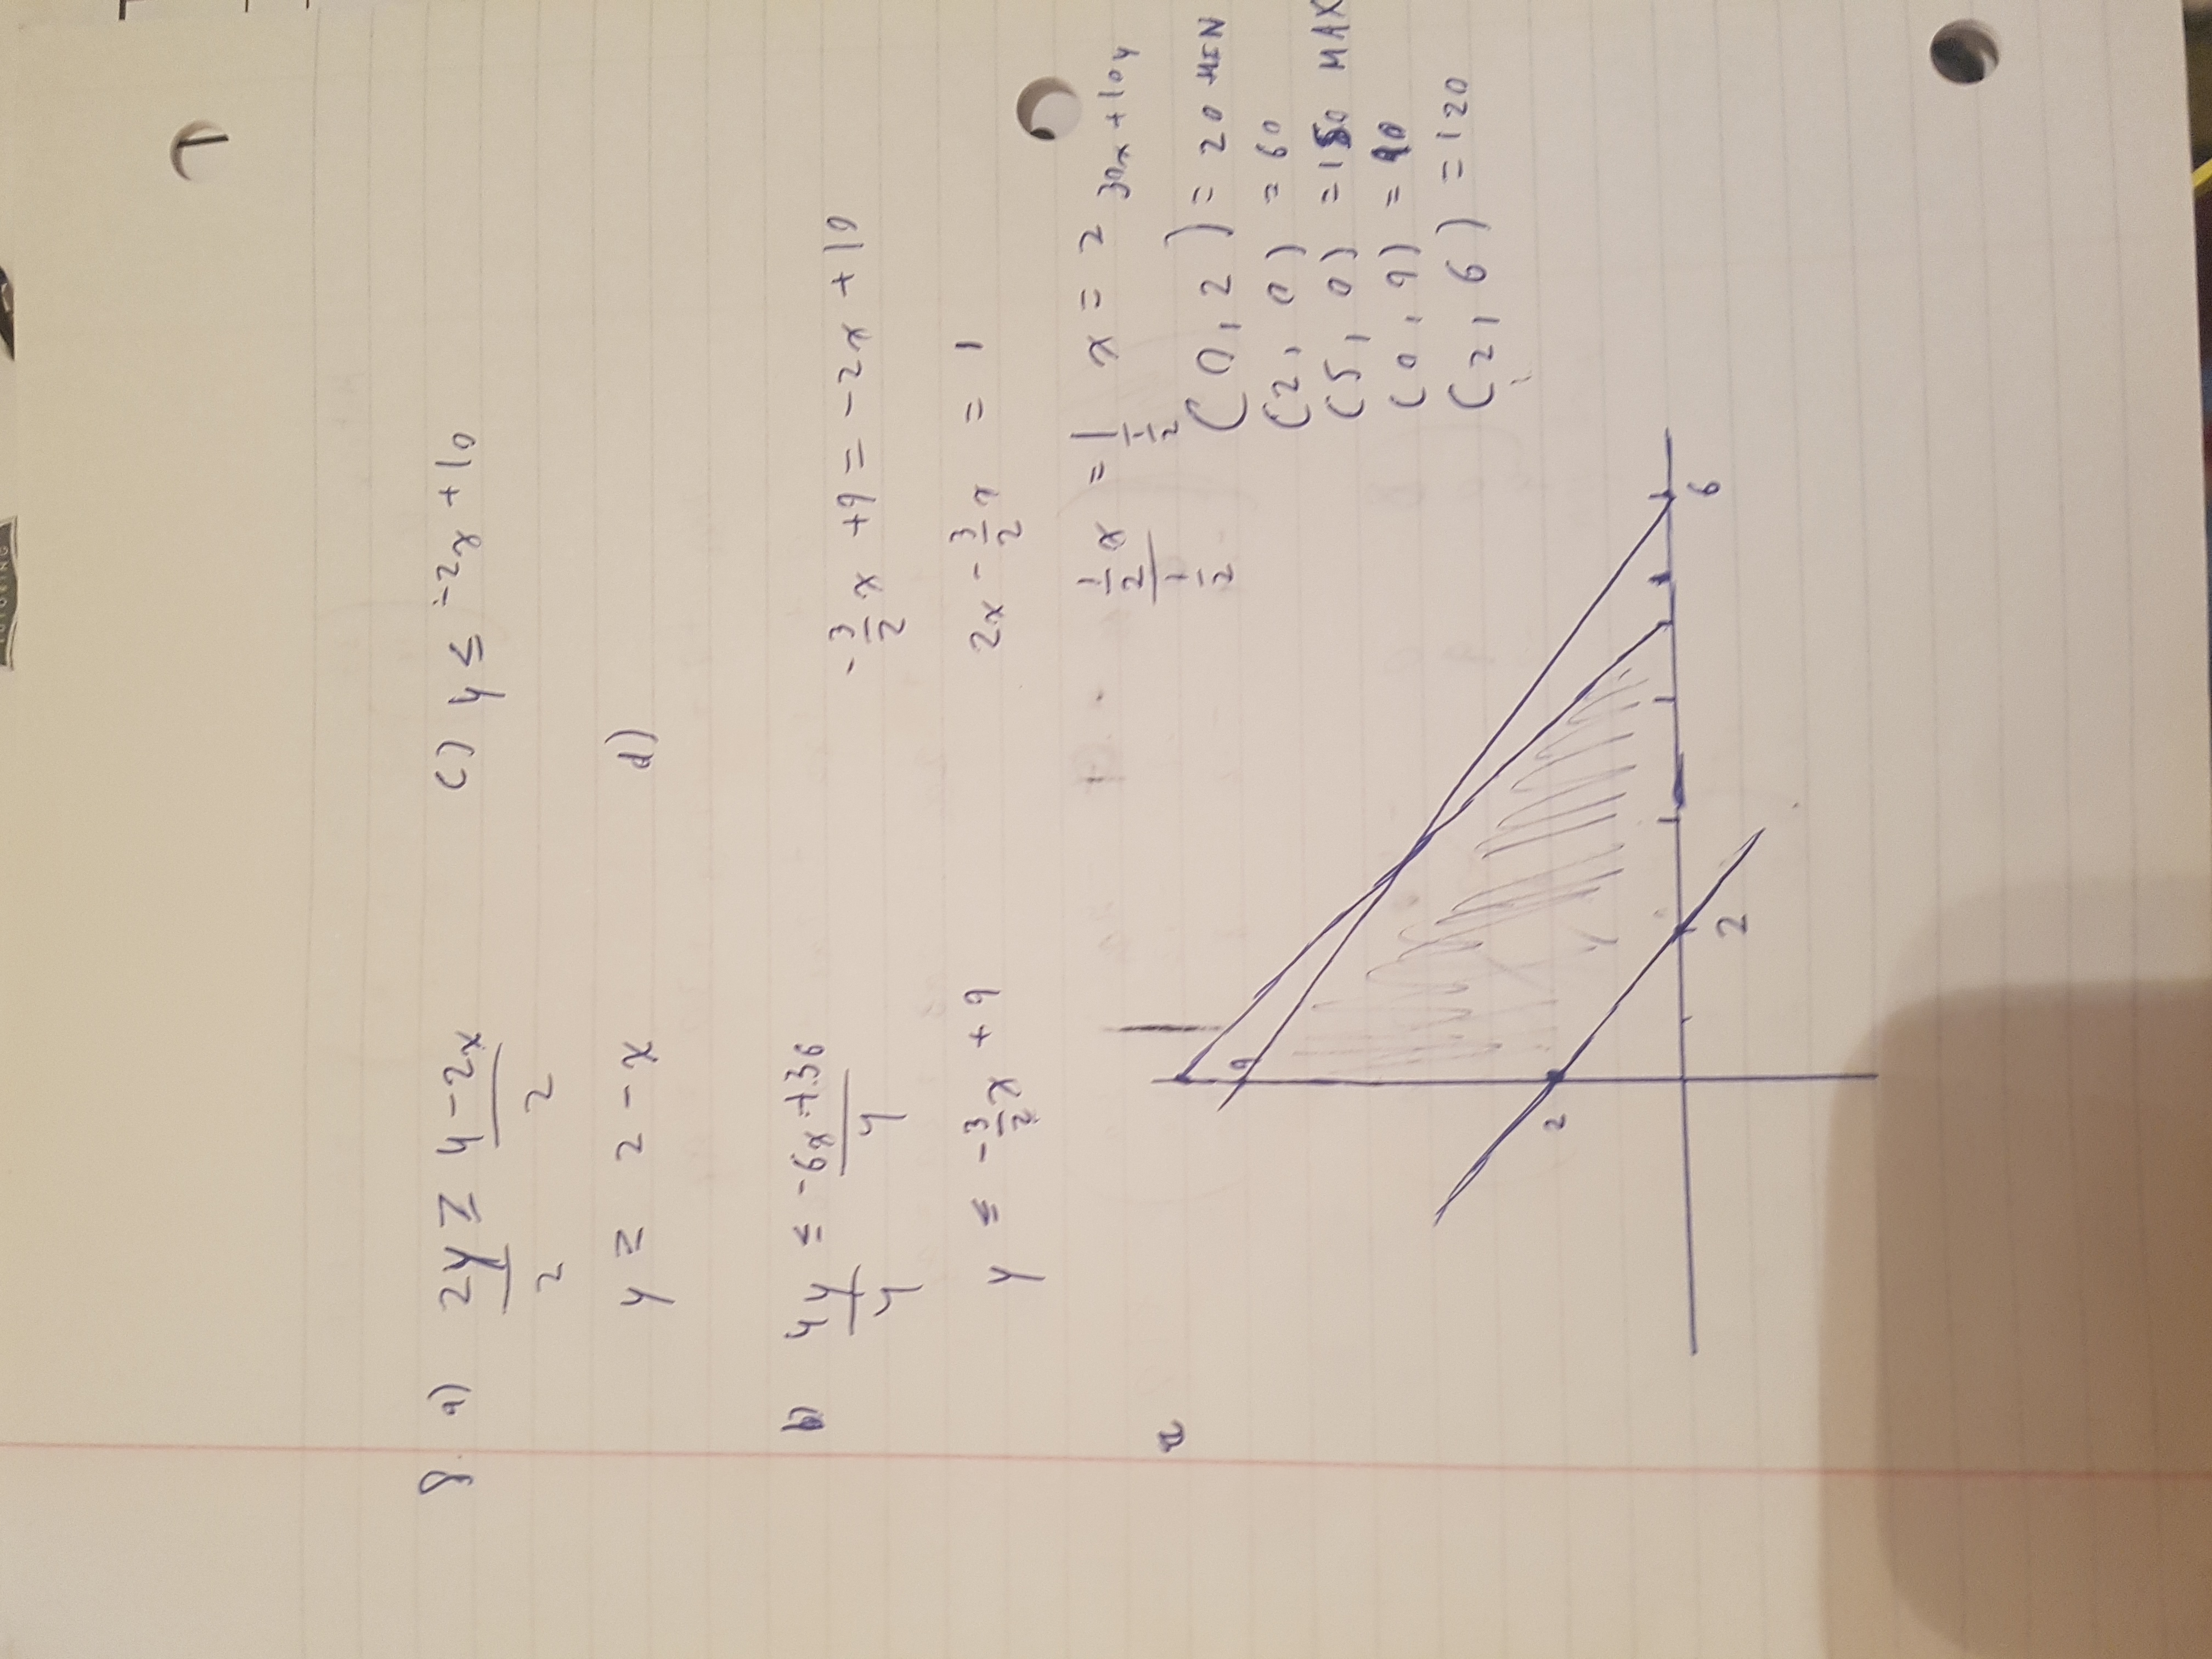 8. a) 2y/2 ≥ 4-2x/2
y ≥ 2 - x
b) 4y/4 ≤ -6x+36/4
y ≤ -3/2x + 9
c) y ≤ -2x + 10
d)
-3/2x + 9 = -2x + 10
2x - 3/2x = 1
1/2x / 1/2 = 1 / 1/2 x = 2
30x + 10y
(0, 2) = 20 MIN
(2, 0) = 60
(5, 0) = 150 MAX
(0, 9) = 90
(2, 6) = 120
9
2
2
6